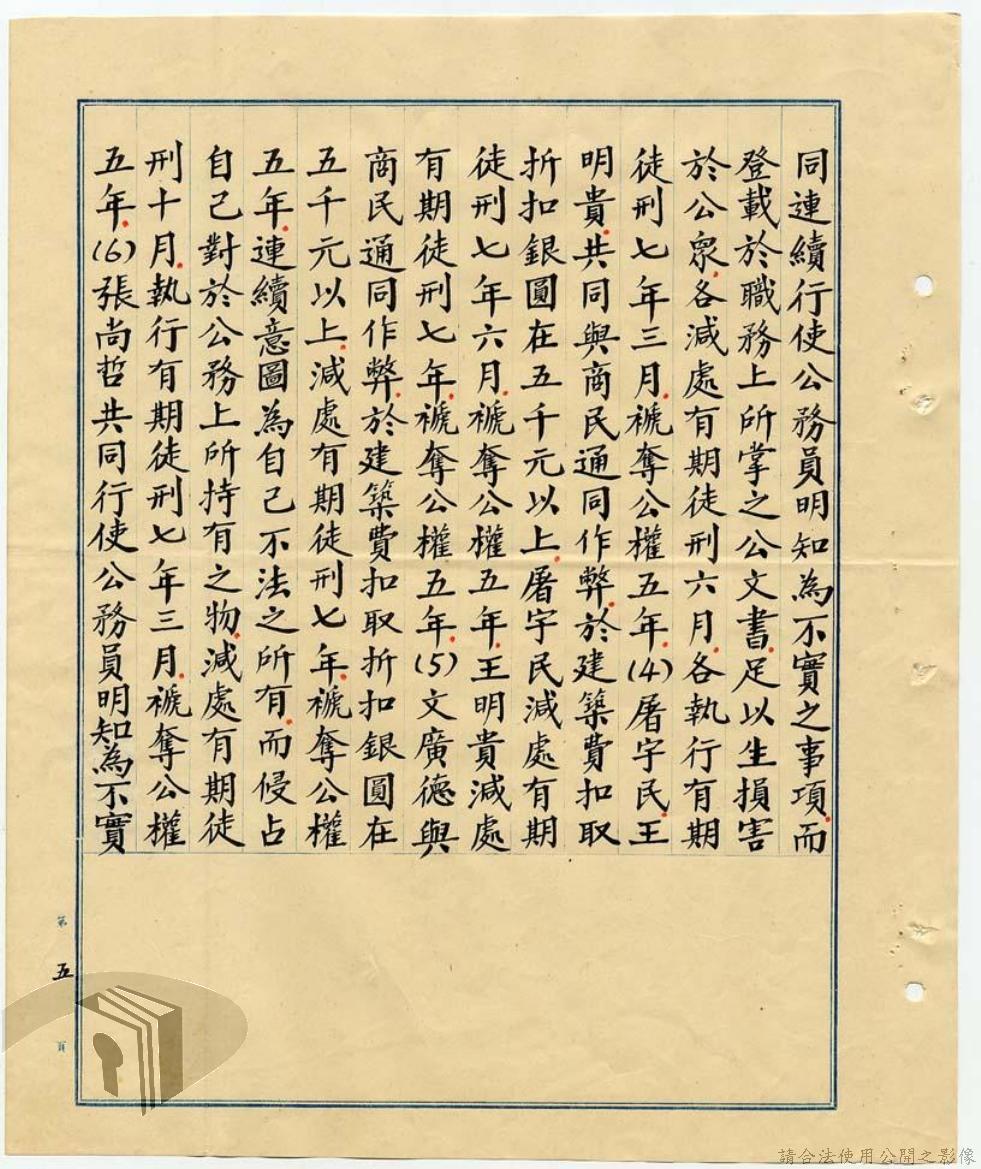 同連續行使公務員明知為不實之事項.而
登載於職務上所掌之公文書.足以生損害
於公眾.各減處有期徒刑六月.各執行有期
徒刑七年三月.褫奪公權五年.(4)屠宇民.王
明貴.共同與商民通同作弊.於建築費扣取
折扣銀圓在五千元以上.屠宇民減處有期
徒刑七年六月.褫奪公權五年.王明貴減處
有期徒刑七年.褫奪公權五年.(5)文廣德與
商民通同作弊.於建築費扣取折扣銀圓在
五千元以上.減處有期徒刑七年.褫奪公權
五年.連續意圖為自己不法之所有.而侵占
自己對於公務上所持有之物.減處有期徒
刑十月.執行有期徒刑七年三月.褫奪公權
五年.(6)張尚哲共同行使公務員明知為不實
第五頁
請合法使用公開之影像